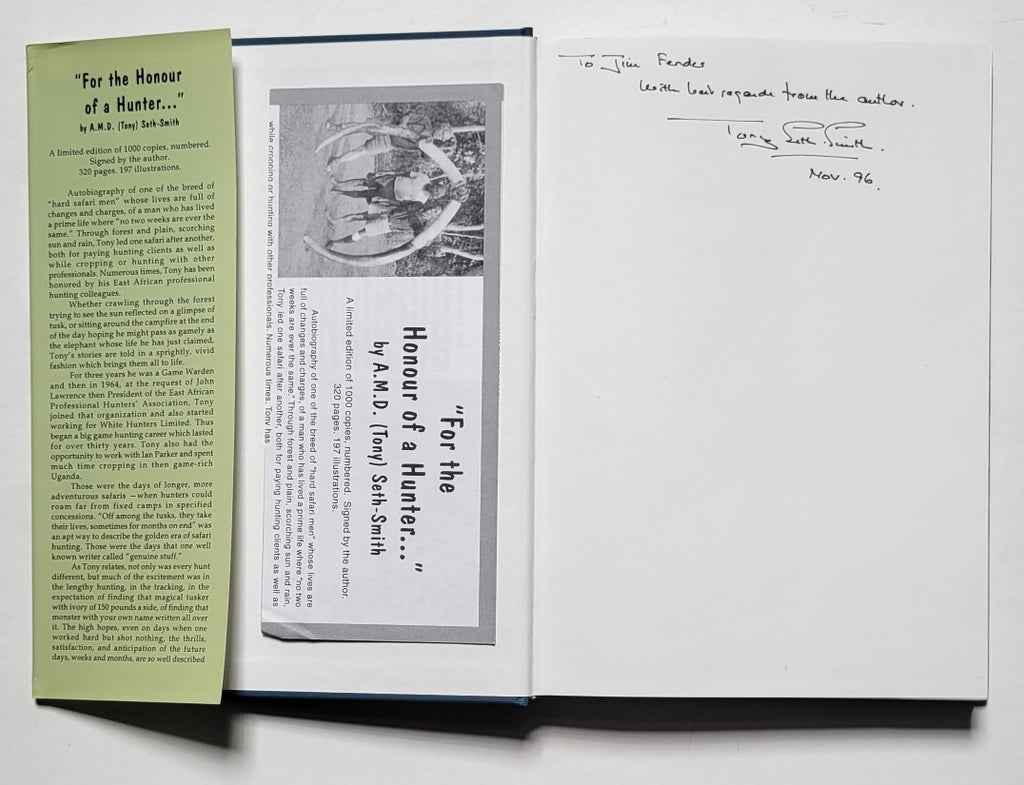 "For the Honour
of a Hunter..."
by A.M.D. (Tony) Seth-Smith
A limited edition of 1000 copies, numbered.
Signed by the author.
320 pages. 197 illustrations.
Autobiography of one of the breed of
"hard safari men" whose lives are full of
changes and charges, of a man who has lived
a prime life where "no two weeks are ever the
same." Through forest and plain, scorching
sun and rain, Tony led one safari after another,
both for paying hunting clients as well as
while cropping or hunting with other
professionals. Numerous times, Tony has been
honored by his East African professional
hunting colleagues.
Whether crawling through the forest
trying to see the sun reflected on a glimpse of
tusk, or sitting around the campfire at the end
of the day hoping he might pass as gamely as
the elephant whose life he has just claimed,
Tony's stories are told in a sprightly, vivid
fashion which brings them all to life.
For three years he was a Game Warden
and then in 1964, at the request of John
Lawrence then President of the East African
Professional Hunters' Association, Tony
joined that organization and also started
working for White Hunters Limited. Thus
began a big game hunting career which lasted
for over thirty years. Tony also had the
opportunity to work with Ian Parker and spent
much time cropping in then game-rich
Uganda.
Those were the days of longer, more
adventurous safaris — when hunters could
roam far from fixed camps in specified
concessions. "Off among the tusks, they take
their lives, sometimes for months on end" was
an apt way to describe the golden era of safari
hunting. Those were the days that one well
known writer called "genuine stuff."
As Tony relates, not only was every hunt
different, but much of the excitement was in
the lengthy hunting, in the tracking, in the
expectation of finding that magical tusker
with ivory of 150 pounds a side, of finding that
monster with your own name written all over
it. The high hopes, even on days when one
worked hard but shot nothing, the thrills,
satisfaction, and anticipation of the future
days, weeks and months, are so well described
"For the
Honour of a Hunter..."
by A.M.D. (Tony) Seth-Smith
A limited edition of 1000 copies, numbered. Signed by the author.
320 pages. 197 illustrations.
Autobiography of one of the breed of "hard safari men" whose lives are
full of changes and charges, of a man who has lived a prime life where "no two
weeks are ever the same." Through forest and plain, scorching sun and rain,
Tony led one safari after another, both for paying hunting clients as well as
while cropping or hunting with other professionals. Numerous times, Tony has
To Jim
With best regards from the author.
Tony Seth-Smith.
Nov. 96.